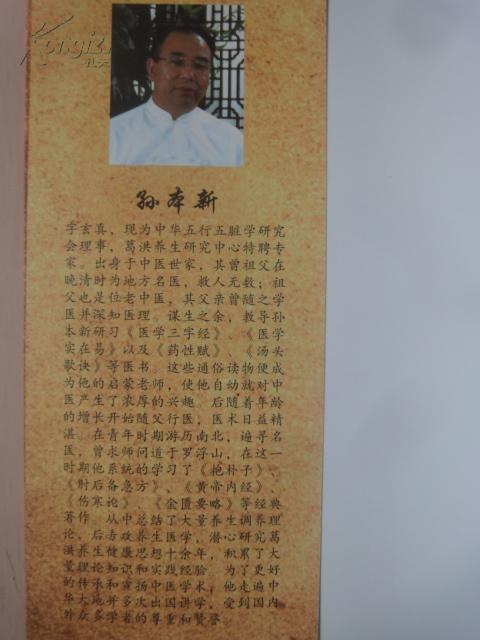 孙本新
字玄真，现为中华五行五脏学研究
会理事，葛洪养生研究中心特聘专
家。出身于中医世家，其曾祖父在
晚清时为地方名医，救人无数；祖
父也是位老中医，其父亲曾随之学
医并深知医理。谋生之余，教导孙
本新研习《医学三字经》、《医学
实在易》以及《药性赋》、《汤头
歌诀》等医书。这些通俗读物便成
为他的启蒙老师，使他自幼就对中
医产生了浓厚的兴趣。后随着年龄
的增长开始随父行医，医术日益精
湛。在青年时期游历南北，遍寻名
医，曾求师问道于罗浮山，在这一
时期他系统的学习了《抱朴子》、
《肘后备急方》、《黄帝内经》、
《伤寒论》、《金匮要略》等经典
著作，从中总结了大量养生调养理
论，后专攻养生医学，潜心研究葛
洪养生健康思想十余年，积累了大
量理论知识和实践经验。为了更好
的传承和宣扬中医学术，他走遍中
华大地并多次出国讲学，受到国内
外众多学者的尊重和赞誉。